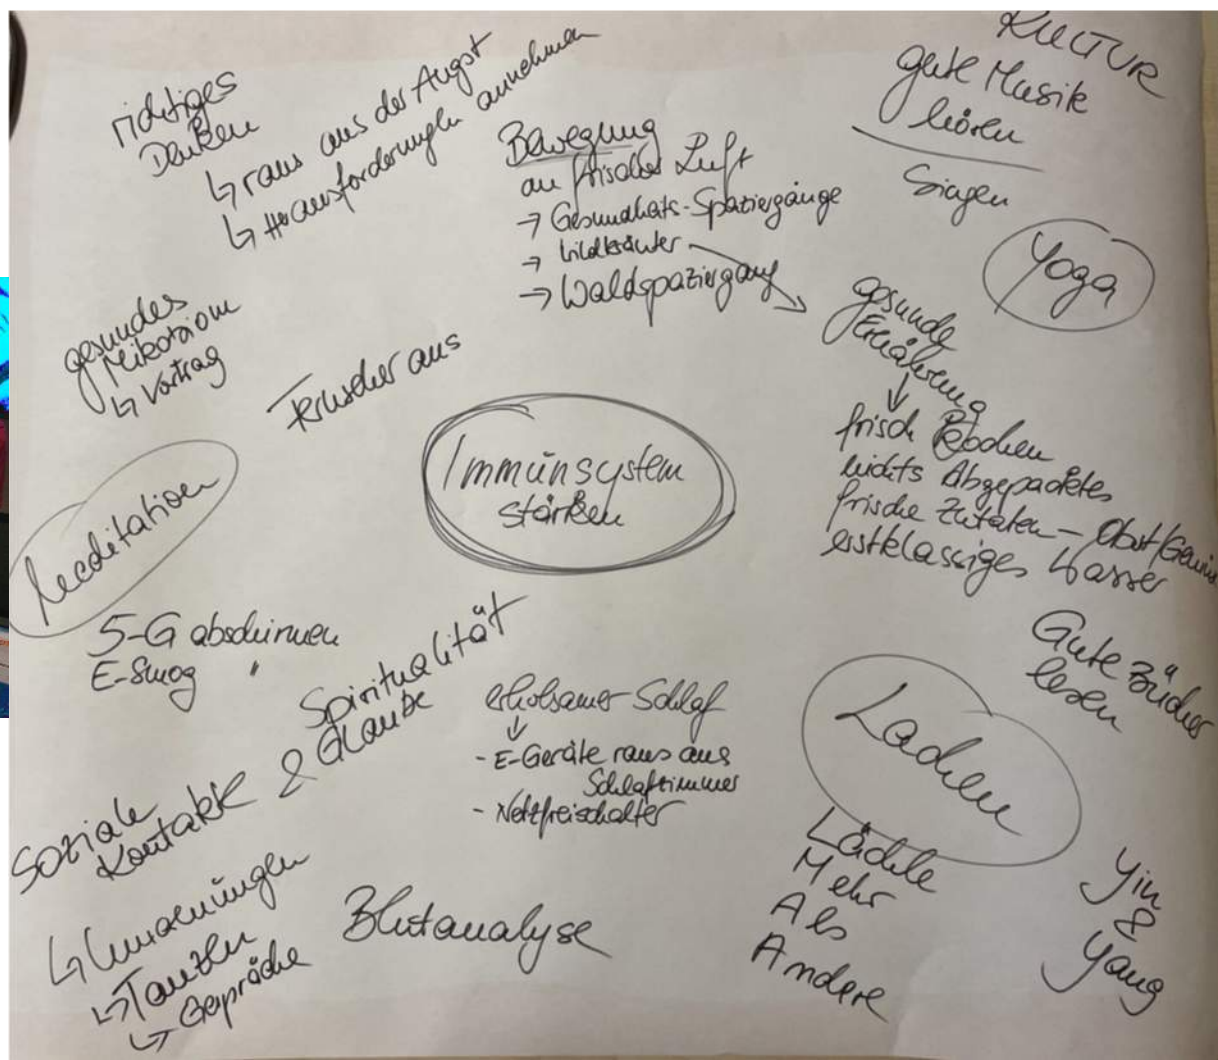 richtiges
Denken
↳ raus aus der Angst
↳ Herausforderungen annehmen
Bewegung
an frischer Luft
→ Gesundheits-Spaziergänge
→ Wildkräuter
→ Waldspaziergang
KULTUR
gute Musik
hören
Singen
Yoga
gesundes
Mikrobiom
↳ Vortrag
Fernseher aus
Immunsystem
stärken
gesunde
Ernährung
↓
frisch kochen
nichts Abgepacktes
frische Zutaten – Obst/Gemüs
erstklassiges Wasser
Meditation
5-G abschirmen
E-Smog "
Spiritualität
& Glaube
erholsamer Schlaf
↓
- E-Geräte raus aus
Schlafzimmer
- Netzfreischalter
Gute Bücher
lesen
Lachen
Lächle
Mehr
Als
Andere
Yin
&
Yang
Soziale
Kontakte
↳ Umarmungen
↳ Tanzen
↳ Gespräche
Blutanalyse